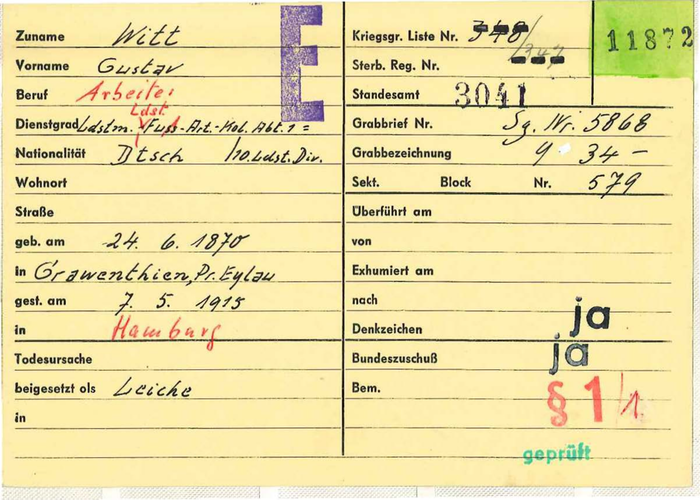 E
Zuname Witt
Vorname Gustav
Beruf Arbeiter
Ldst.
Dienstgrad Ldstm. Fuss-Art.-Kol. Abt. 1 =
Nationalität Dtsch /10. Ldst. Div.
Wohnort
Straße
geb. am 24. 6. 1870
in Grawenthien, Pr. Eylau
gest. am 7. 5. 1915
in Hamburg
Todesursache
beigesetzt als Leiche
in
Kriegsgr. Liste Nr. 348
/347
Sterb. Reg. Nr.
Standesamt 3041
11872
Grabbrief Nr. Sg. Nr. 5868
Grabbezeichnung 9 34 –
Sekt. Block Nr. 579
Überführt am
von
Exhumiert am
nach
Denkzeichen ja
Bundeszuschuß ja
Bem. § 1/1.
geprüft